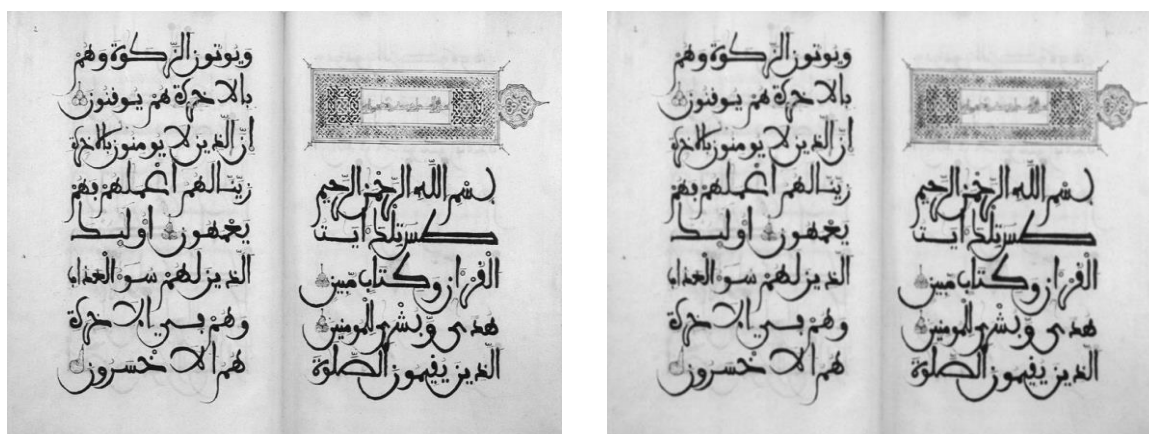 بِسْمِ اللَّهِ الرَّحْمَٰنِ الرَّحِيمِ
طسٓ تِلْكَ ءَايَٰتُ
الْقُرْءَانِ وَكِتَابٍ مُّبِينٍ
هُدًى وَبُشْرَىٰ لِلْمُومِنِينَ
الَّذِينَ يُقِيمُونَ الصَّلَوٰةَ
وَيُوتُونَ الزَّكَوٰةَ وَهُمْ
بِالَاخِرَةِ هُمْ يُوقِنُونَ
إِنَّ الَّذِينَ لَا يُومِنُونَ بِالَاخِرَةِ
زَيَّنَّا لَهُمْ أَعْمَٰلَهُمْ فَهُمْ
يَعْمَهُونَ أُوْلَٰئِكَ
الَّذِينَ لَهُمْ سُوءُ الْعَذَابِ
وَهُمْ فِي الَاخِرَةِ
هُمُ الَاخْسَرُونَ
بِسْمِ اللَّهِ الرَّحْمَٰنِ الرَّحِيمِ
طسٓ تِلْكَ ءَايَٰتُ
الْقُرْءَانِ وَكِتَابٍ مُّبِينٍ
هُدًى وَبُشْرَىٰ لِلْمُومِنِينَ
الَّذِينَ يُقِيمُونَ الصَّلَوٰةَ
وَيُوتُونَ الزَّكَوٰةَ وَهُمْ
بِالَاخِرَةِ هُمْ يُوقِنُونَ
إِنَّ الَّذِينَ لَا يُومِنُونَ بِالَاخِرَةِ
زَيَّنَّا لَهُمْ أَعْمَٰلَهُمْ فَهُمْ
يَعْمَهُونَ أُوْلَٰئِكَ
الَّذِينَ لَهُمْ سُوءُ الْعَذَابِ
وَهُمْ فِي الَاخِرَةِ
هُمُ الَاخْسَرُونَ